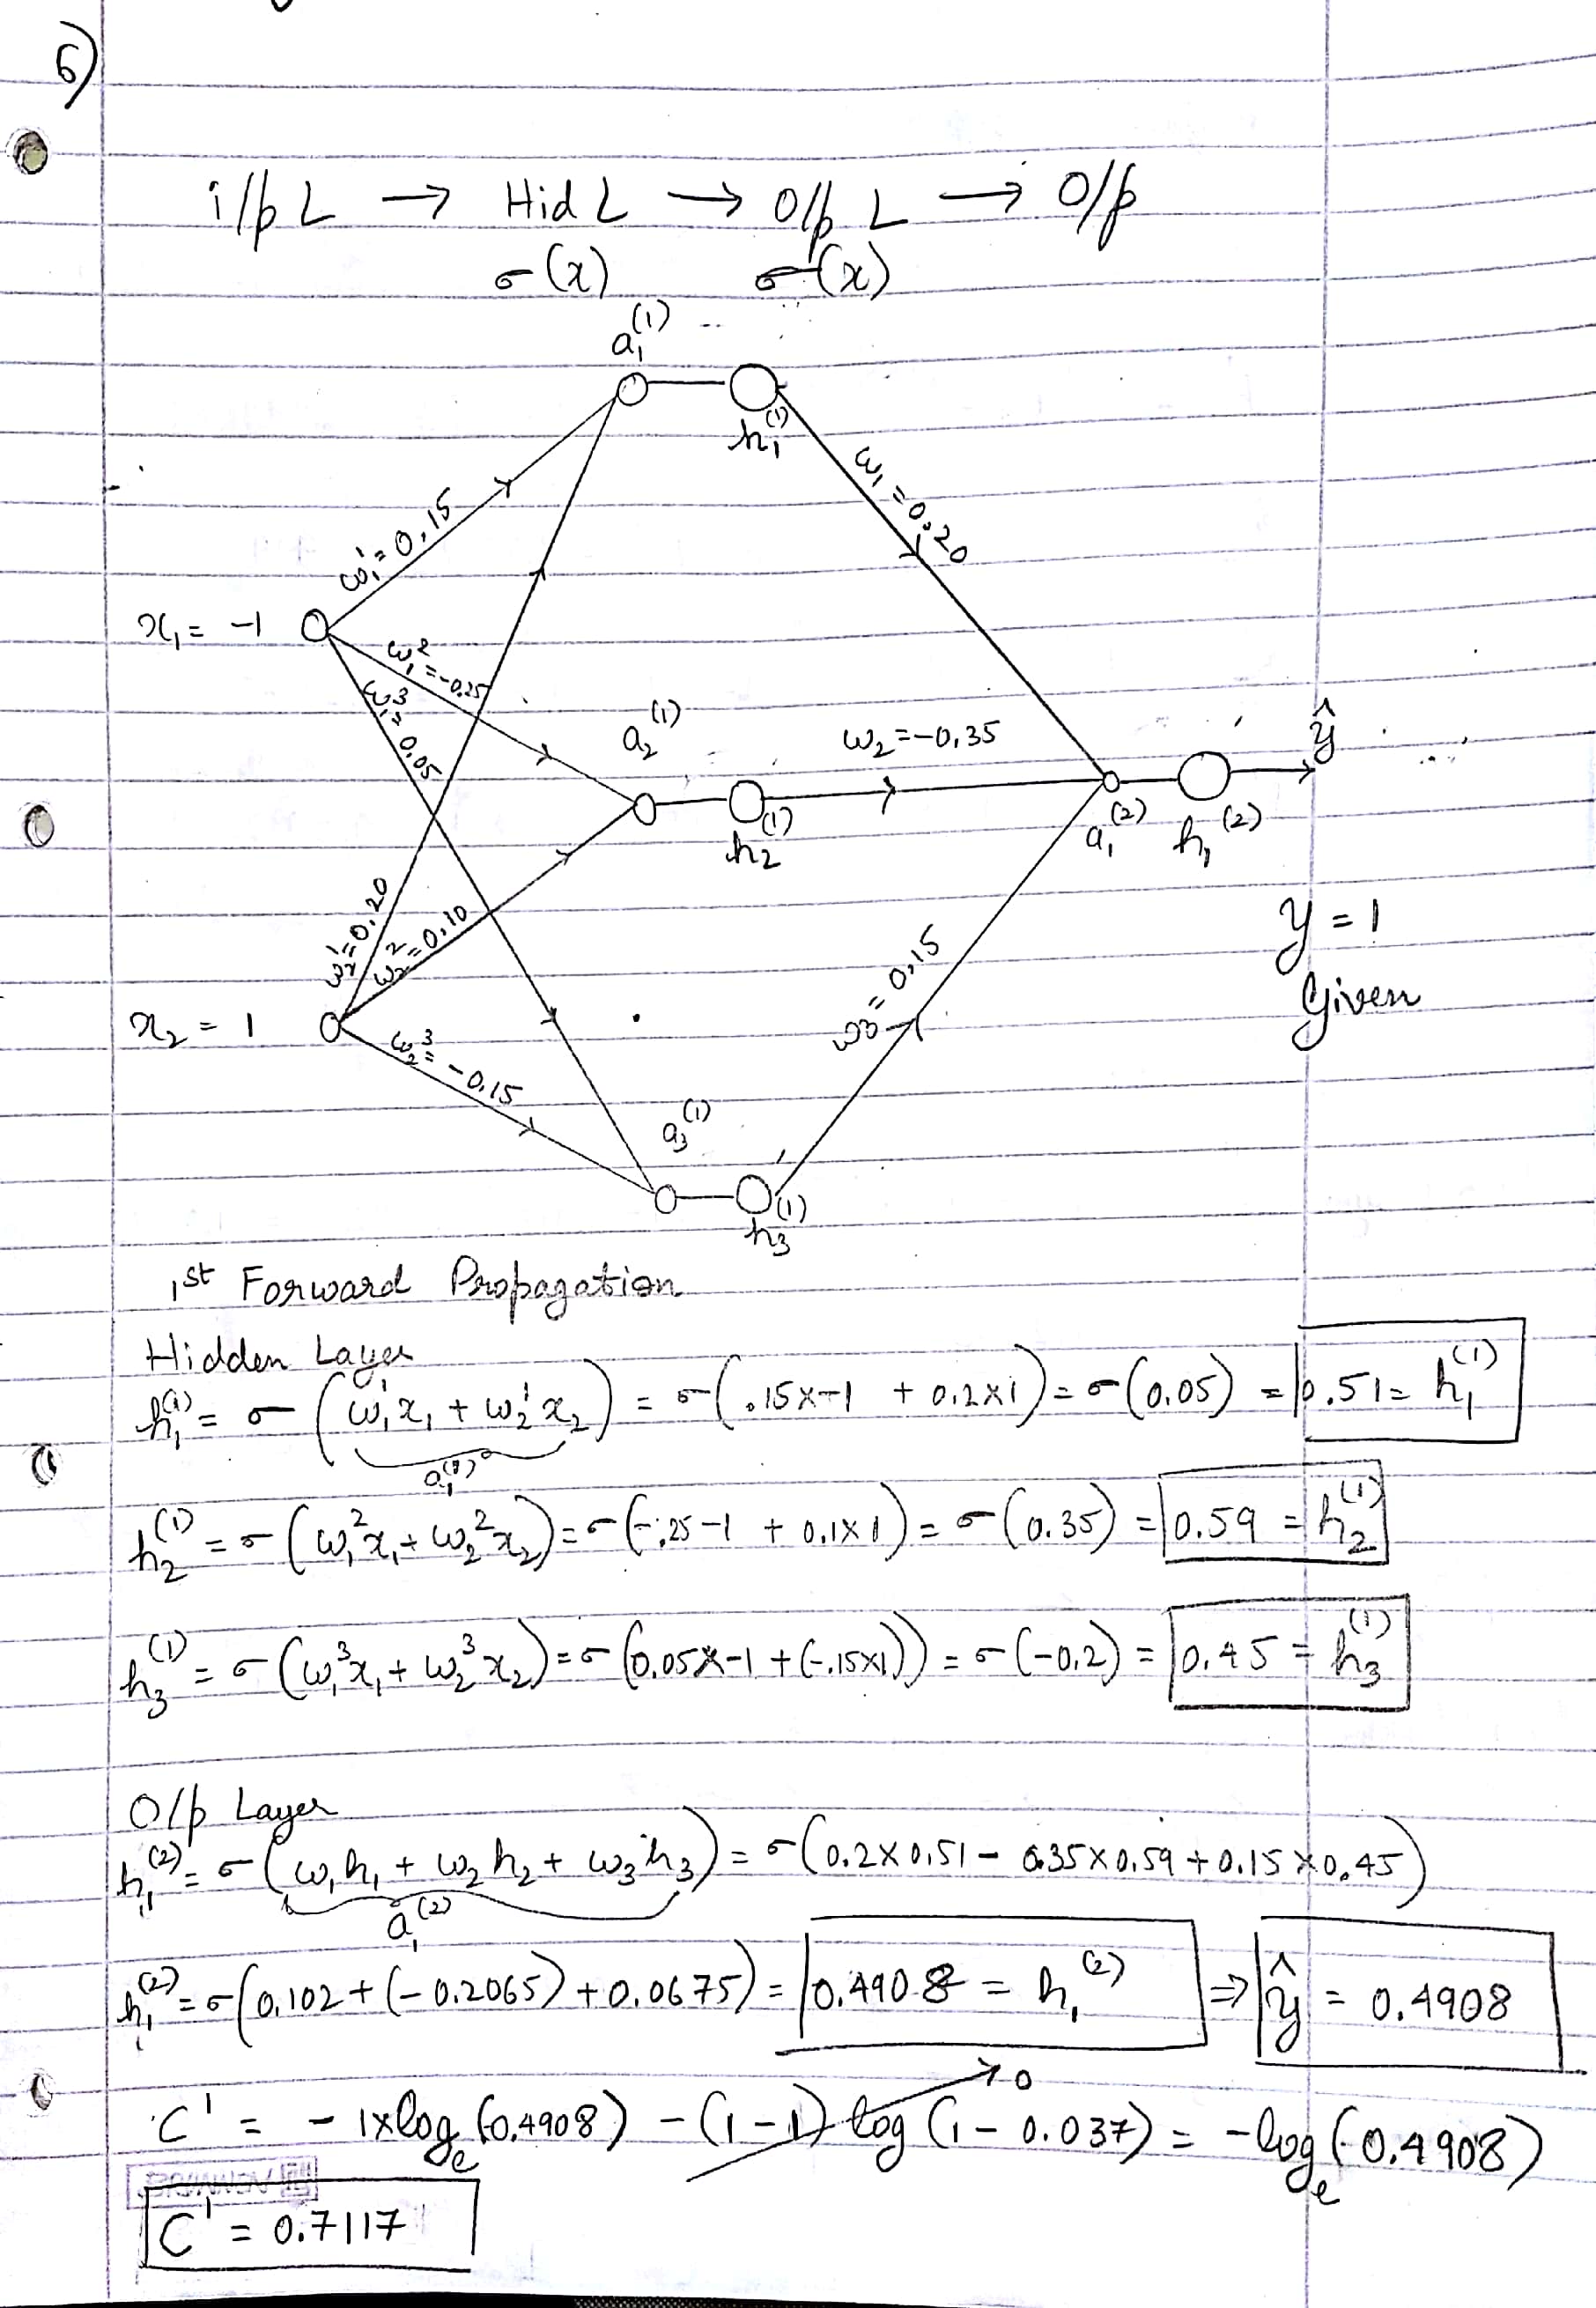 6)
i/p L → Hid L → O/p L → O/p
σ(x) σ(x)
a₁⁽¹⁾
h₁⁽¹⁾
ω₁¹ = 0.15
ω₁ = 0.20
x₁ = -1
ω₁² = -0.25
ω₁³ = 0.05
a₂⁽¹⁾
ω₂ = -0.35
ŷ
h₂⁽¹⁾
a₁⁽²⁾ h₁⁽²⁾
ω₂¹ = 0.20
ω₂² = 0.10
y = 1
Given
ω₃ = 0.15
x₂ = 1
ω₂³ = -0.15
a₃⁽¹⁾
h₃⁽¹⁾
1st Forward Propagation
Hidden Layer
h₁⁽¹⁾ = σ(ω₁¹x₁ + ω₂¹x₂) = σ(.15×-1 + 0.2×1) = σ(0.05) = 0.51 = h₁⁽¹⁾
a₁⁽¹⁾
h₂⁽¹⁾ = σ(ω₁²x₁ + ω₂²x₂) = σ(-.25-1 + 0.1×1) = σ(0.35) = 0.59 = h₂⁽¹⁾
h₃⁽¹⁾ = σ(ω₁³x₁ + ω₂³x₂) = σ(0.05×-1 + (-.15×1)) = σ(-0.2) = 0.45 = h₃⁽¹⁾
O/p Layer
h₁⁽²⁾ = σ(ω₁h₁ + ω₂h₂ + ω₃h₃) = σ(0.2×0.51 - 0.35×0.59 + 0.15×0.45)
a₁⁽²⁾
h₁⁽²⁾ = σ(0.102 + (-0.2065) + 0.0675) = 0.4908 = h₁⁽²⁾ ⇒ ŷ = 0.4908
C¹ = - 1×logₑ(0.4908) - (1-1) log(1 - 0.037) → 0 = -logₑ(0.4908)
C¹ = 0.7117